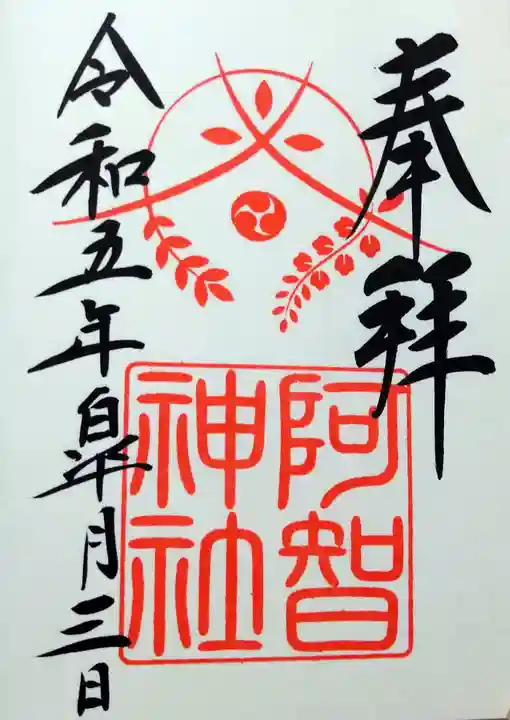 奉拝
阿智
神社
令和五年皐月三日